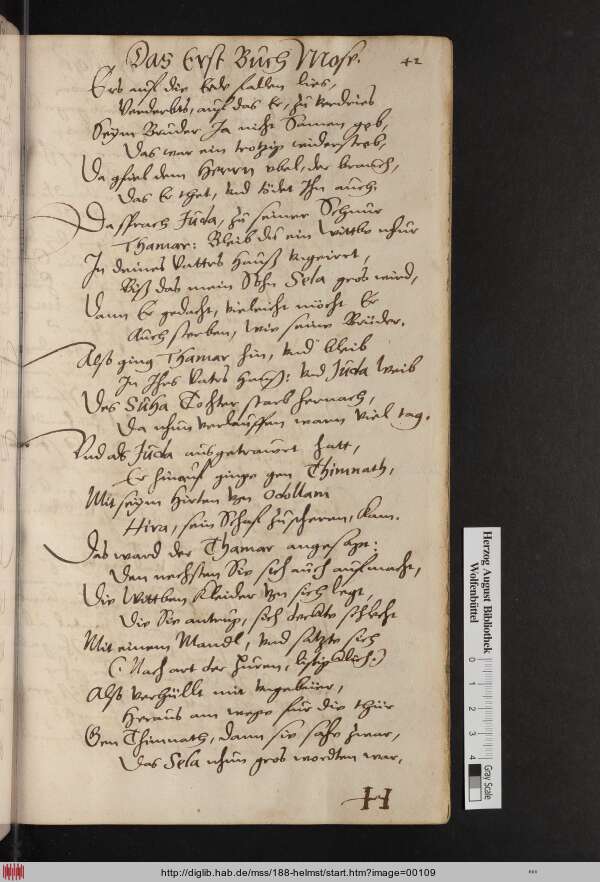 Das Erst Buch Mose.
42
Ers auf die Erde fallen lies,
Verderbts, auf das Er, zu verdries
Seym Bruder, Ja nicht Samen geb,
Das war ein trotzig widerstreb,
Da gfiel dem HERRN vbel, der brauch,
Das Er thet, vnd tödet Ihn auch.
Da sprach Juda, zu seiner Schnur
Thamar: Bleib du ein Wittbe nhur
In deines Vatters Hauß vngeirret,
Biß das mein Sohn Sela gros wird,
Dann Er gedacht, vieleicht möcht Er
Auch sterben, wie seine Brüder.
Alß ging Thamar hin, vnd bleib
In Ihrs Vatrs Hauß: vnd Juda Weib
Des Suha Tochter starb hernach,
Da nhun verlauffen warn viel tag.
Vnd als Juda ausgetrauret hatt,
Er hinauf ginge gen Thimnath,
Mit seym Hirten von Odollam
Hira, sein Schaf zuscheren, kam.
Das ward der Thamar angesagt:
Den nechsten Sie sich auch aufmacht,
Die Wittben Kleider von sich legt,
Die Sie antrug, sich deckte schlecht
Mit einem Mandl, vnd satzte sich
(Nach art der Huren, listiglich.)
Alß verhüllt mit vngebeur,
Heraus am wege für die thür
Gen Thimnath, dann sie sahe zwar,
Das Sela nhun gros wordten war,
Herzog August Bibliothek
Wolfenbüttel
0 1 2 3 4
Gray Scale
http://diglib.hab.de/mss/188-helmst/start.htm?image=00109